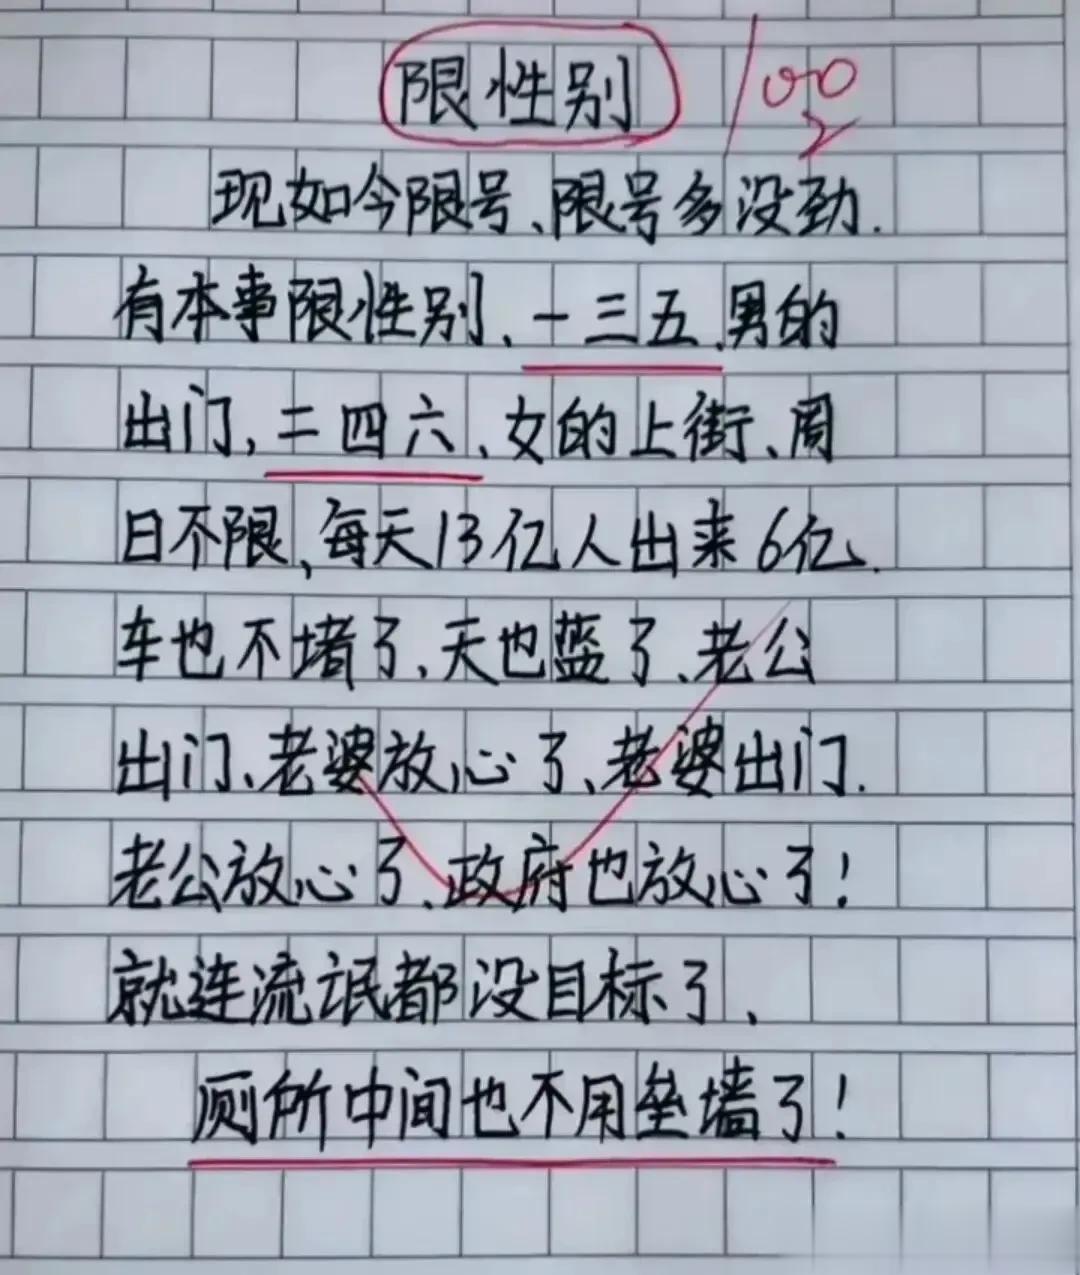 限性别
100
现如今限号、限号多没劲.
有本事限性别、一三五、男的
出门,二四六、女的上街、周
日不限,每天13亿人出来6亿.
车也不堵了、天也蓝了、老公
出门、老婆放心了、老婆出门.
老公放心了、政府也放心了!
就连流氓都没目标了、
厕所中间也不用垒墙了!